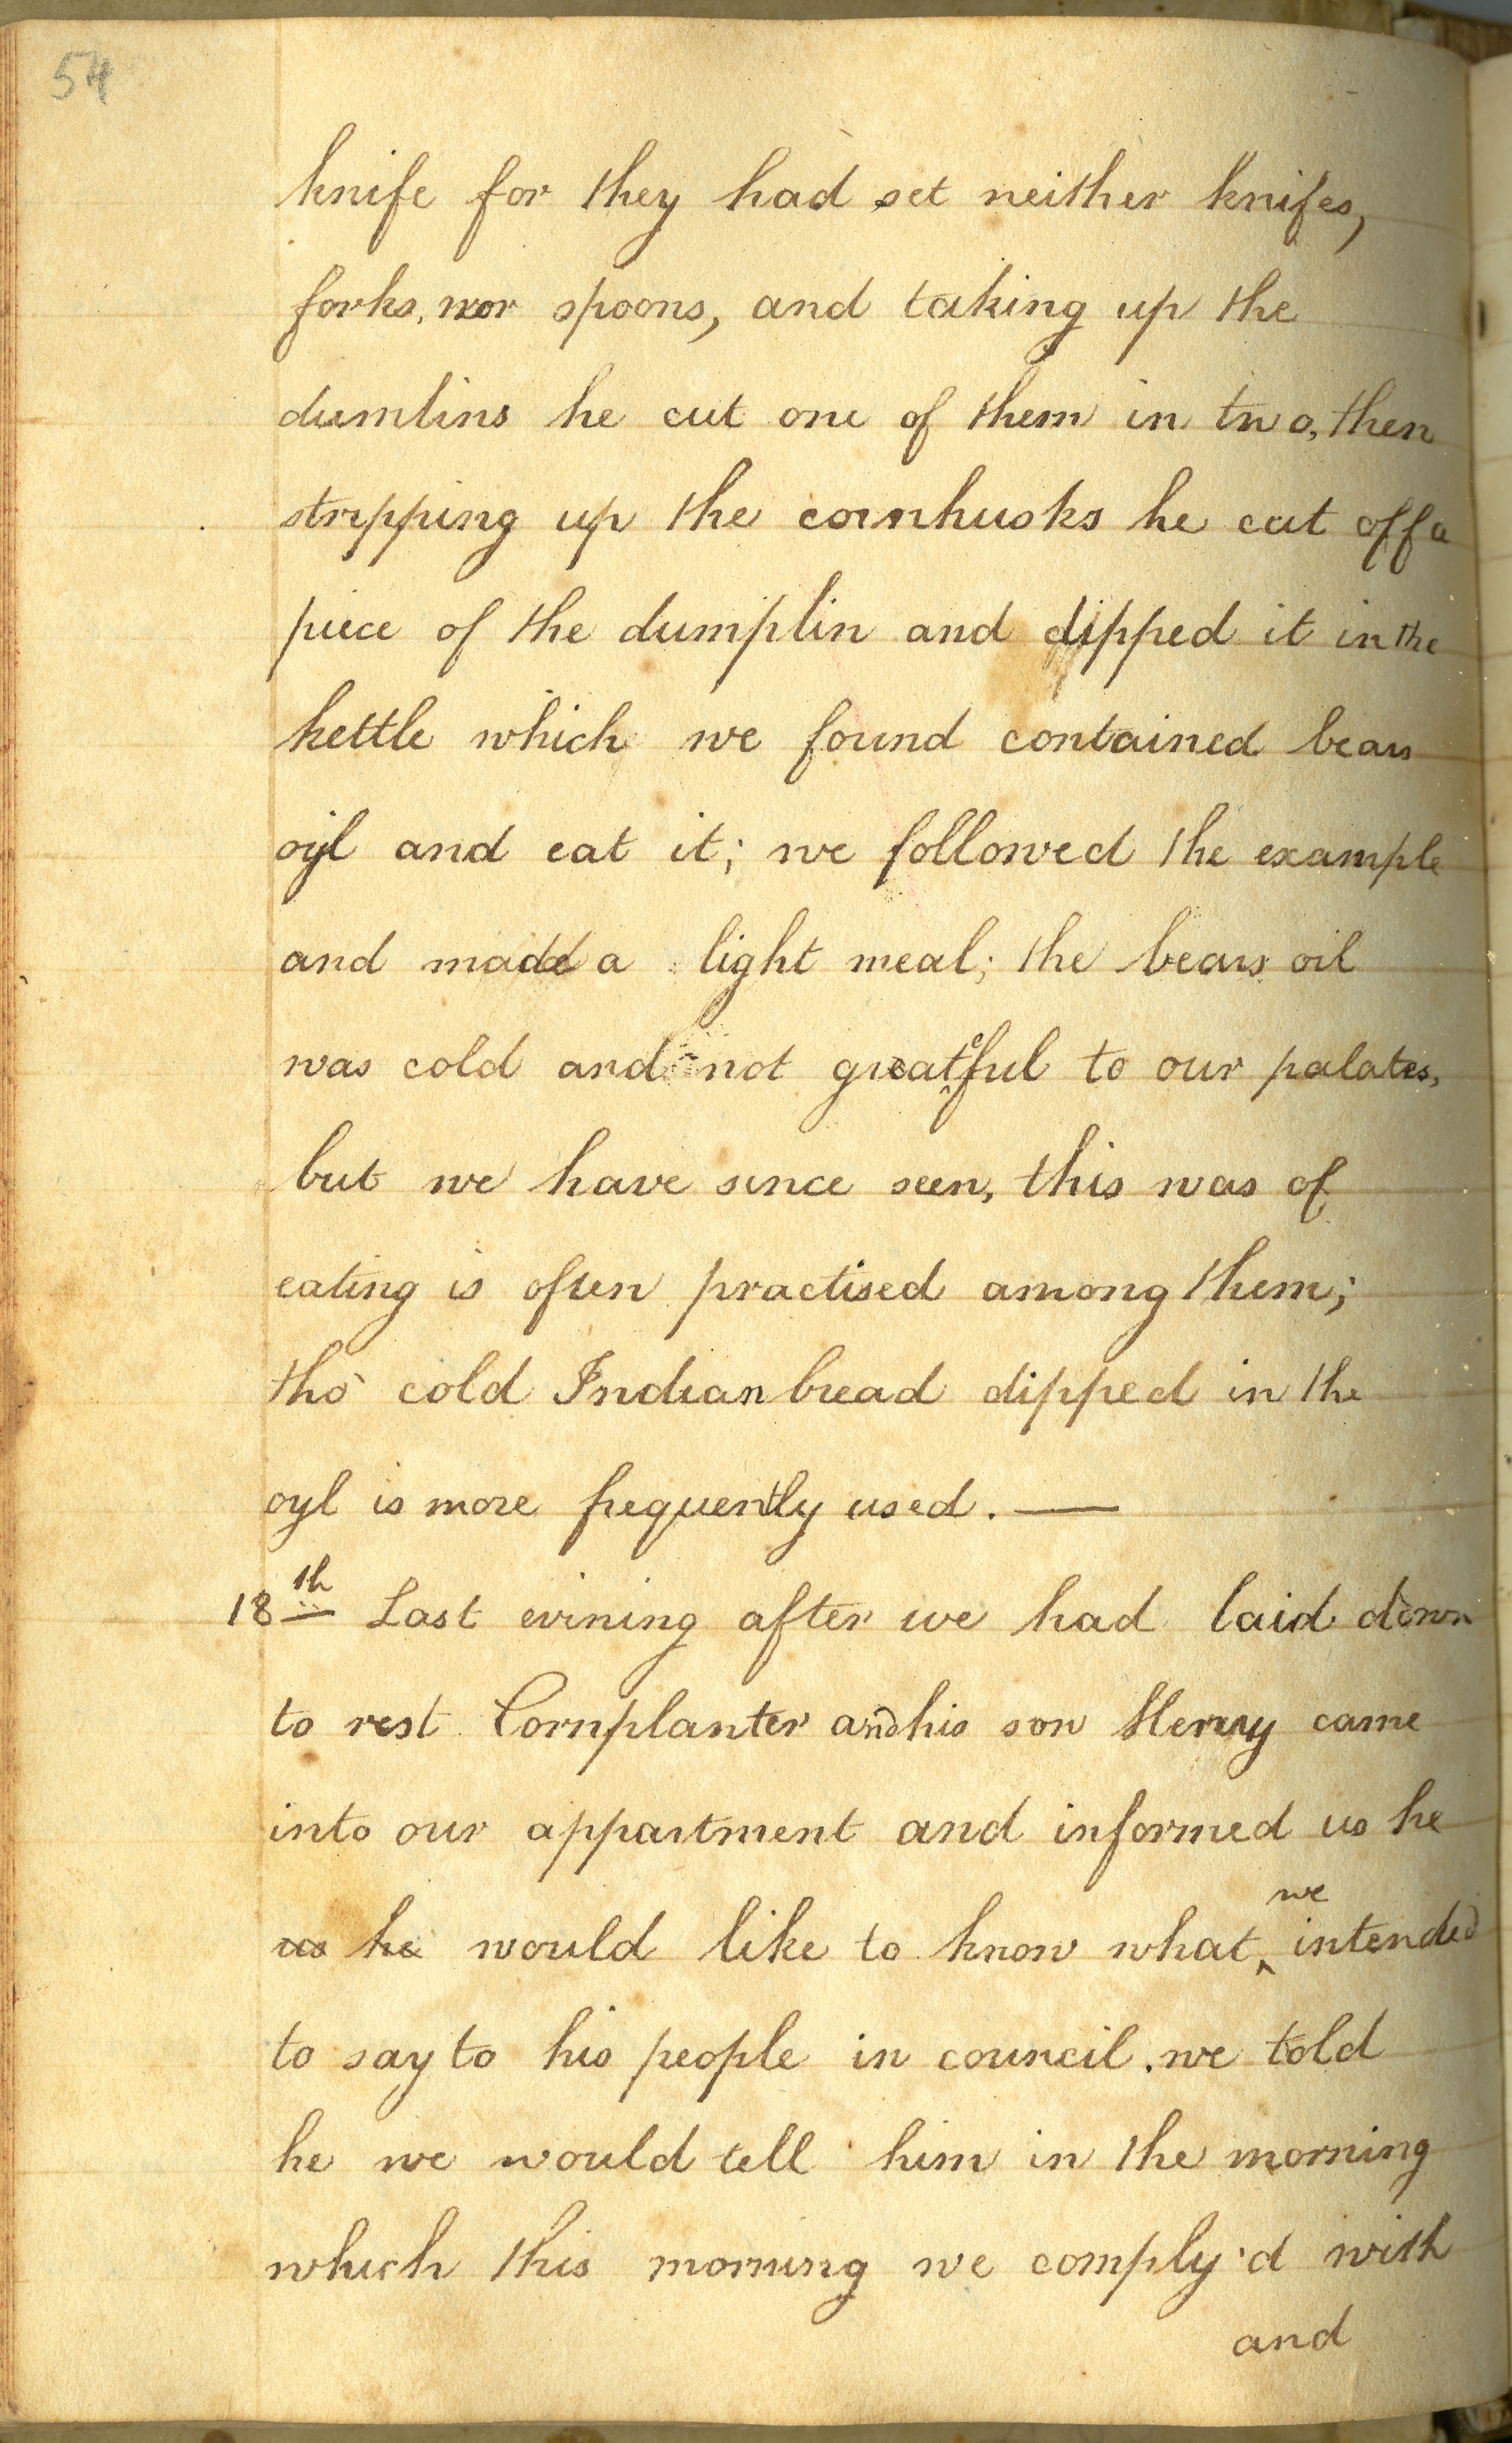 54
knife for they had set neither knifes,
forks, nor spoons, and taking up the
dumlins he cut one of them in two, then
stripping up the cornhusks he cut off a
piece of the dumplin and dipped it in the
kettle which we found contained bears
oyl and eat it; we followed the example
and made a light meal; the bears oil
was cold and not greateful to our palates,
but we have since seen, this was of
eating is often practised among them;
tho' cold Indian bread dipped in the
oyl is more frequently used. —
18th Last evining after we had laid down
to rest Cornplanter and his son Henry came
into our appartment and informed us he
us he would like to know what we intended
to say to his people in council. we told
he we would tell him in the morning
which this morning we comply'd with
and